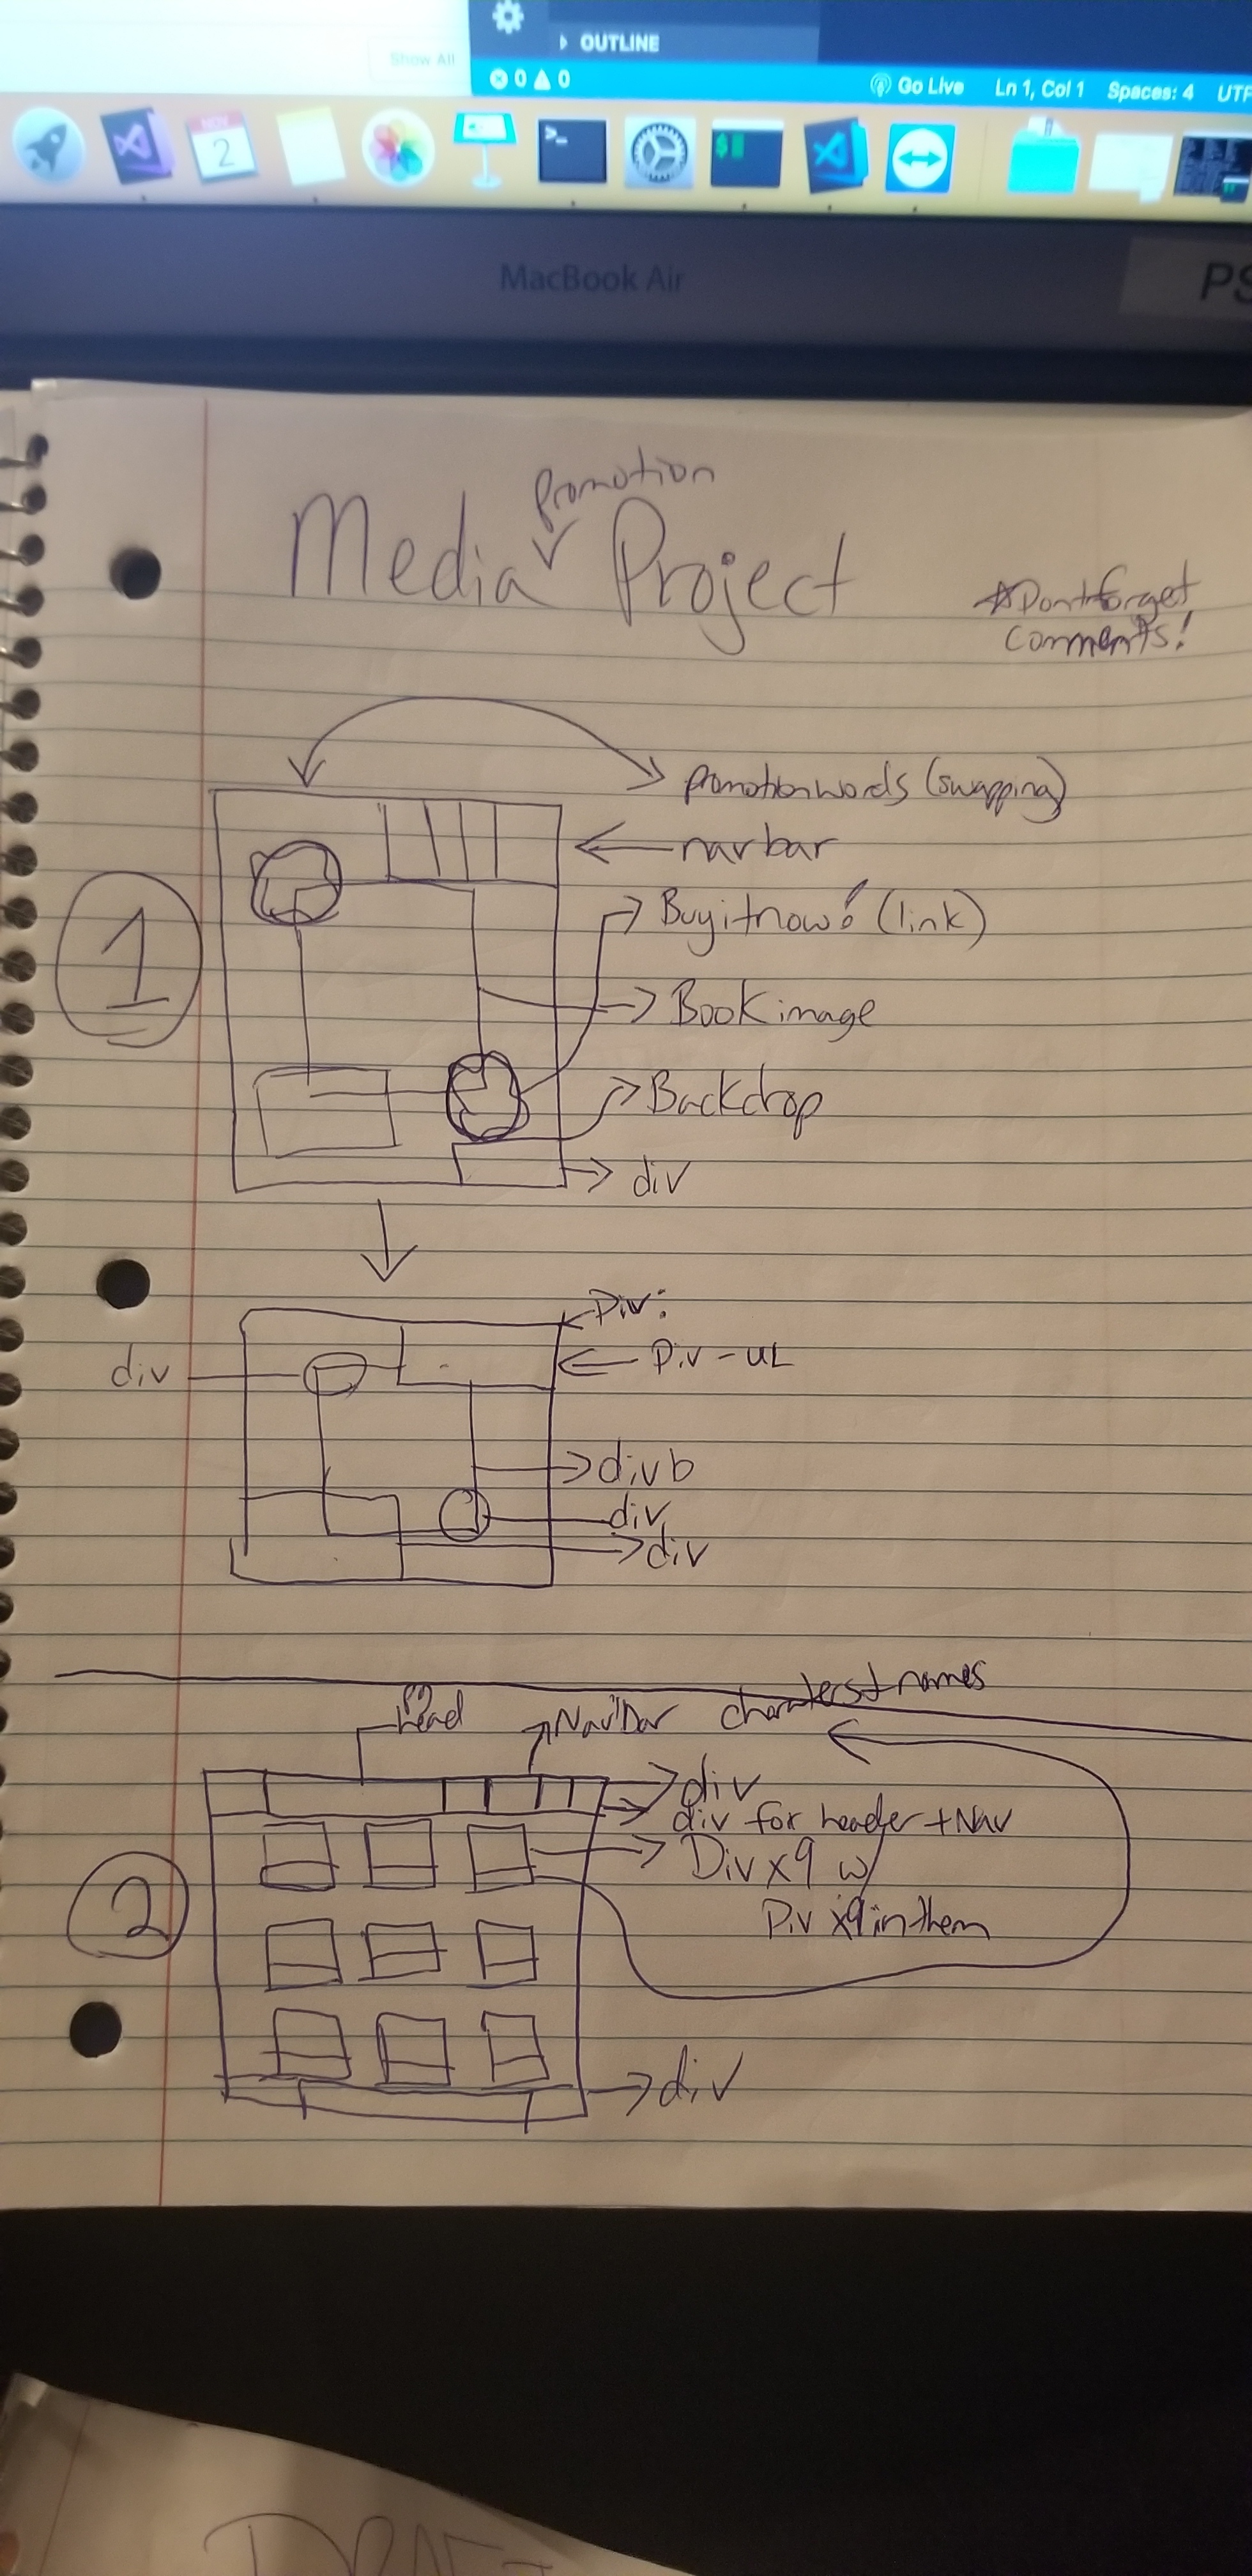 Show All
OUTLINE
0 0
Go Live Ln 1, Col 1 Spaces: 4 UTF
NOV
2
MacBook Air
PS
promotion
Media Project
Dont forget
comments!
promotion words (swapping)
nav bar
Buy it now! (link)
1
Book image
Backdrop
div
Div:
Div - UL
div
div b
div
div
characters + names
head
Nav Bar
div
div for header + Nav
Div x9 w/
Div x9 in them
2
div